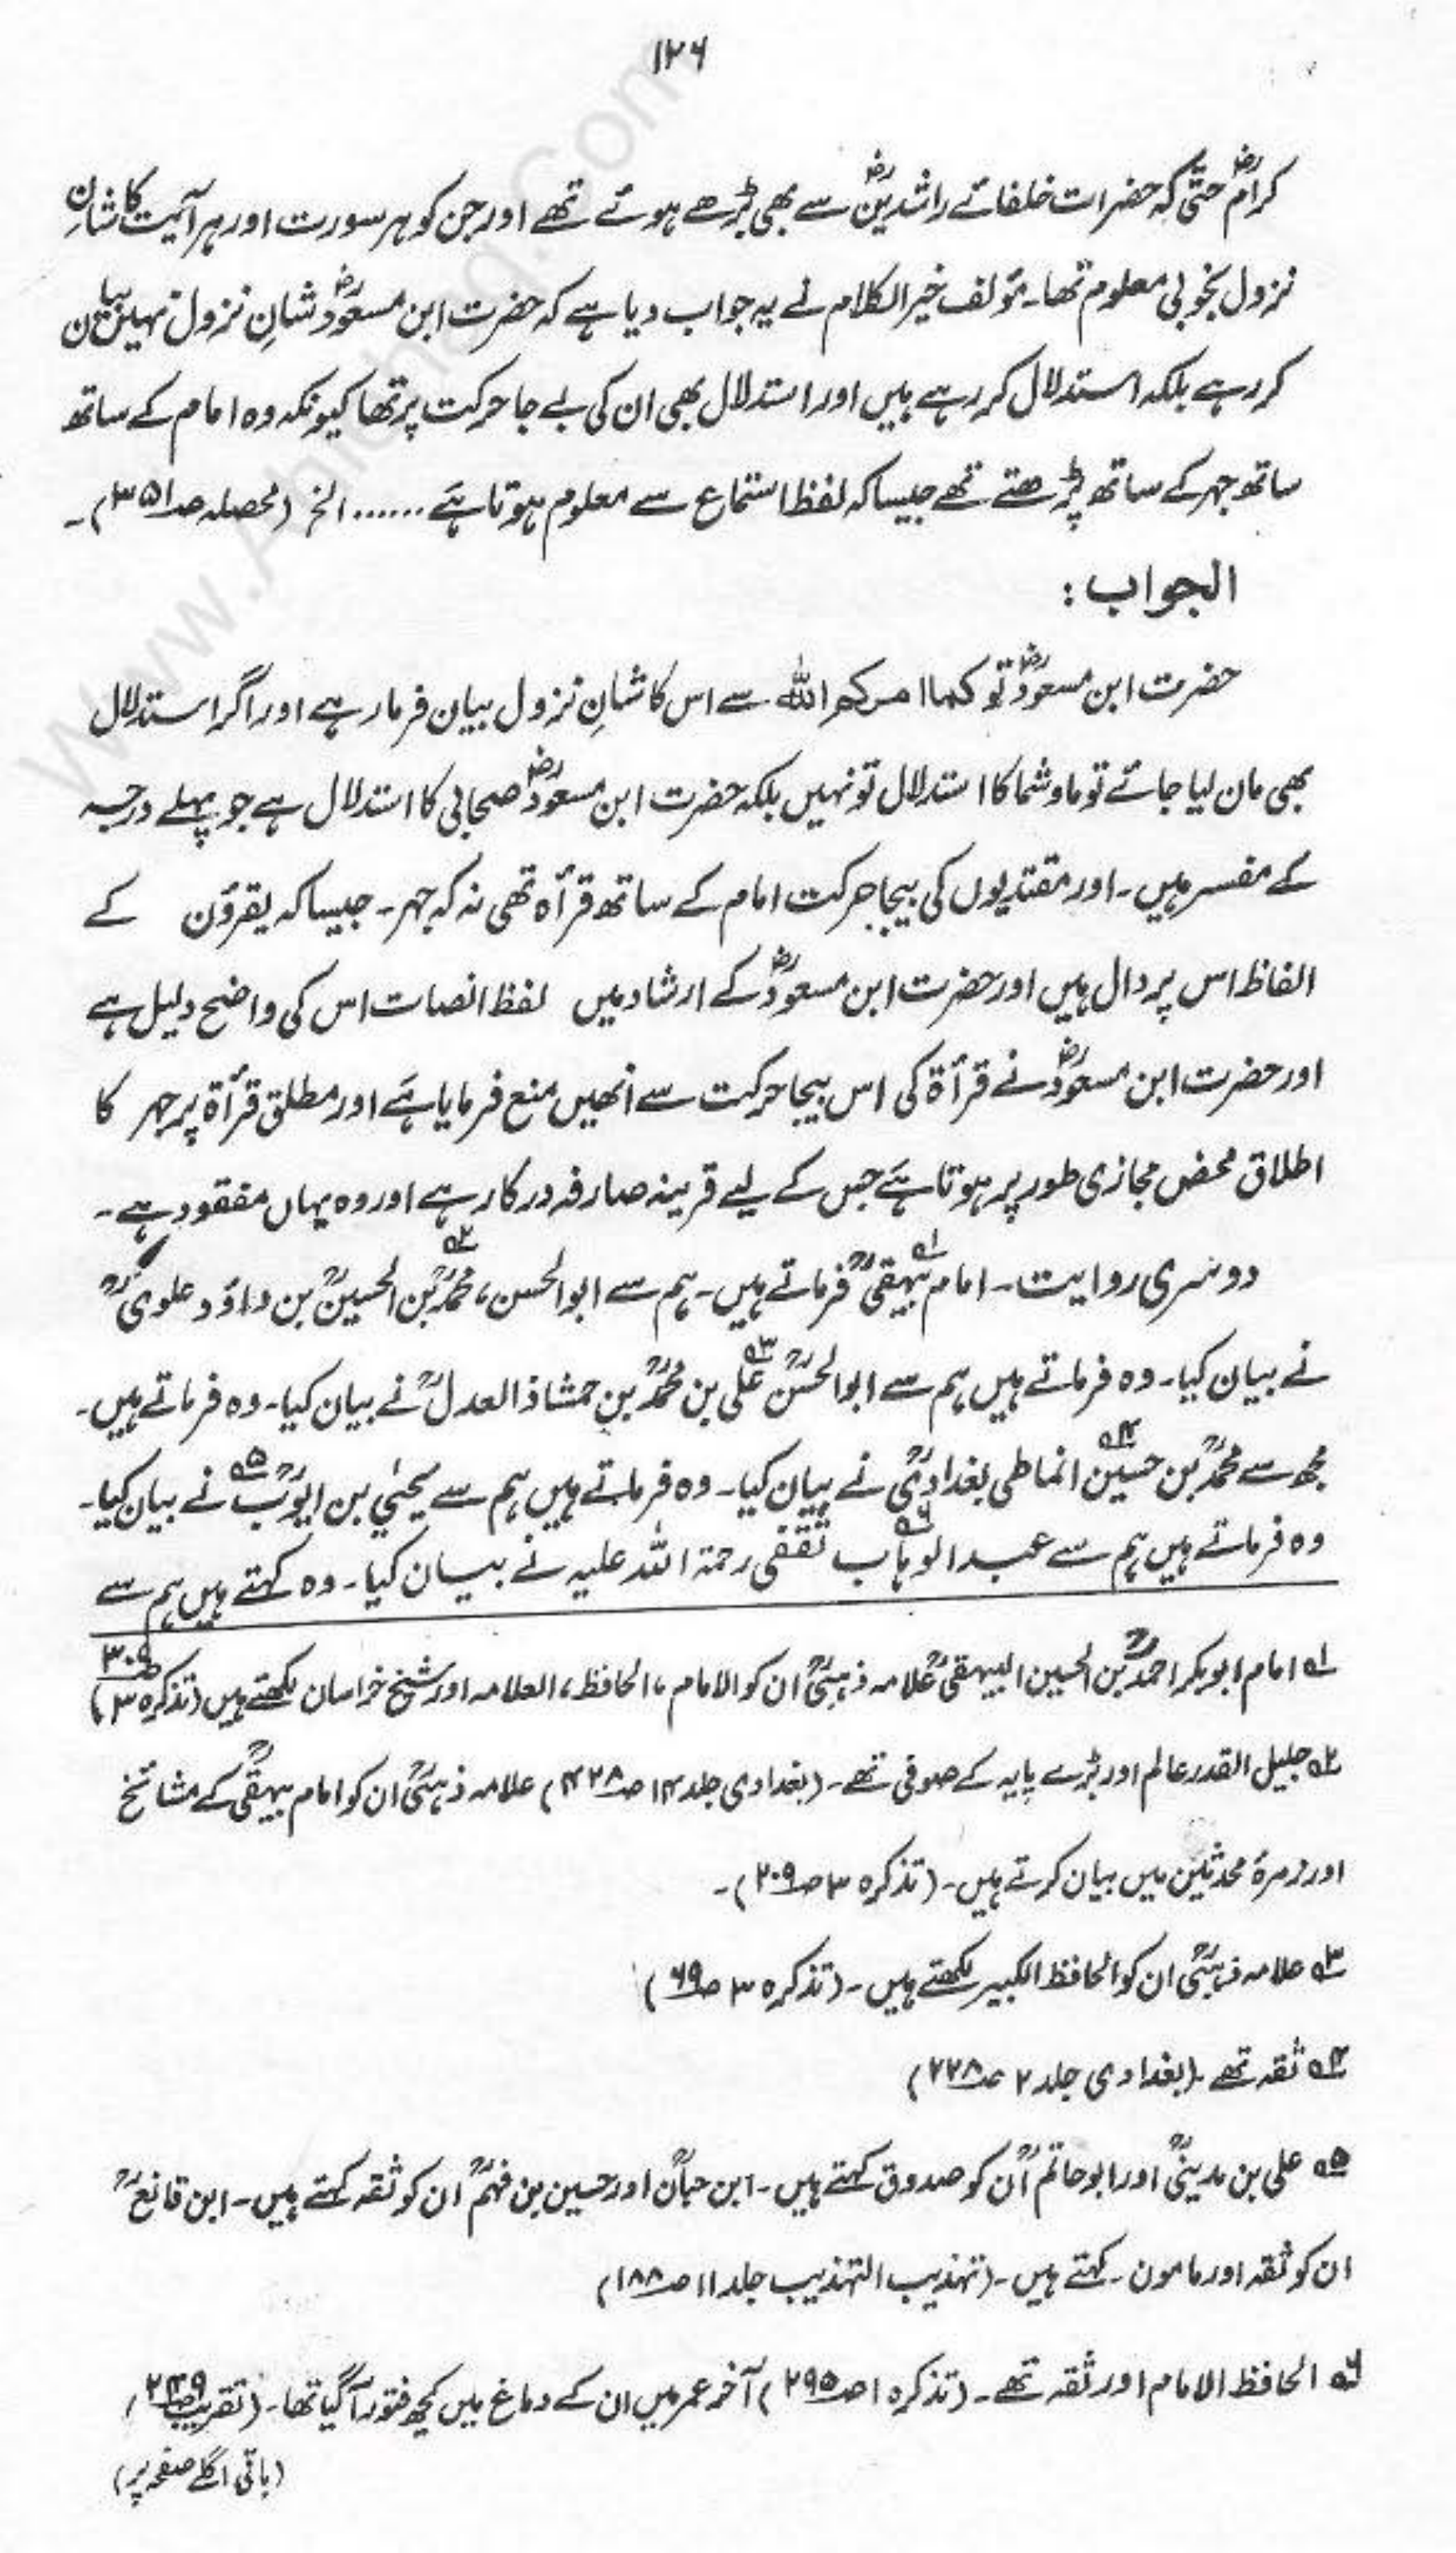 ۱۲۶
کرامؓ حتّٰی کہ حضرات خلفائے راشدینؓ سے بھی بڑھے ہوئے تھے اور جن کو ہر سورت اور ہر آیت کا شانِ
نزول بخوبی معلوم تھا۔ مؤلف خیر الکلام نے یہ جواب دیا ہے کہ حضرت ابن مسعودؓ شانِ نزول نہیں بیان
کر رہے بلکہ استدلال کر رہے ہیں اور استدلال بھی ان کی بے جا حرکت پر تھا کیونکہ وہ امام کے ساتھ
ساتھ جہر کے ساتھ پڑھتے تھے جیسا کہ لفظ استماع سے معلوم ہوتا ہے ...... الخ (محصلہ صـ۳۵۱)۔
الجواب :
حضرت ابن مسعودؓ تو کما امرکم اللہ سے اس کا شانِ نزول بیان فرما رہے اور اگر استدلال
بھی مان لیا جائے تو ماوشما کا استدلال تو نہیں بلکہ حضرت ابن مسعودؓ صحابی کا استدلال ہے جو پہلے درجہ
کے مفسر ہیں۔ اور مقتدیوں کی بیجا حرکت امام کے ساتھ قرأہ تھی نہ کہ جہر۔ جیسا کہ یقرؤن کے
الفاظ اس پر دال ہیں اور حضرت ابن مسعودؓ کے ارشاد میں لفظ انصات اس کی واضح دلیل ہے
اور حضرت ابن مسعودؓ نے قرأۃ کی اس بیجا حرکت سے انھیں منع فرمایا ہے اور مطلق قرأۃ پر جہر کا
اطلاق محض مجازی طور پر ہوتا ہے جس کے لیے قرینہ صارفہ درکار ہے اور وہ یہاں مفقود ہے۔
دوسری روایت۔ امام بیہقیؒ ۱؎ فرماتے ہیں۔ ہم سے ابوالحسن، محمدؒ ۲؎ بن الحسینؒ بن داؤد علویؒ
نے بیان کیا۔ وہ فرماتے ہیں ہم سے ابوالحسنؒ علی ۳؎ بن محمدؒ بن حمشاذ العدلؒ نے بیان کیا۔ وہ فرماتے ہیں۔
مجھ سے محمدؒ بن حسین ۴؎ انماطی بغدادیؒ نے بیان کیا۔ وہ فرماتے ہیں ہم سے یحیٰی بن ایوبؒ ۵؎ نے بیان کیا۔
وہ فرماتے ہیں ہم سے عبد الوہاب ۶؎ ثقفی رحمۃ اللہ علیہ نے بیان کیا۔ وہ کہتے ہیں ہم سے
۱؎ امام ابوبکر احمدؒ بن الحسین البیہقیؒ علامہ ذہبیؒ ان کو الامام، الحافظ، العلامہ اور شیخ خراسان لکھتے ہیں (تذکرہ ۳ صـ۳۰۹)
۲؎ جلیل القدر عالم اور بڑے پایہ کے صوفی تھے۔ (بغدادی جلد ۱۴ صـ۴۲۸) علامہ ذہبیؒ ان کو امام بیہقیؒ کے مشائخ
اور زمرۂ محدثین میں بیان کرتے ہیں۔ (تذکرہ ۳ صـ۲۰۹)۔
۳؎ علامہ ذہبیؒ ان کو الحافظ الکبیر لکھتے ہیں۔ (تذکرہ ۳ صـ۶۹)
۴؎ ثقہ تھے۔ (بغدادی جلد ۲ صـ۲۲۸)
۵؎ علی بن مدینیؒ اور ابوحاتمؒ ان کو صدوق کہتے ہیں۔ ابن حبانؒ اور حسین بن فہمؒ ان کو ثقہ کہتے ہیں۔ ابن قانعؒ
ان کو ثقہ اور مامون۔ کہتے ہیں۔ (تہذیب التہذیب جلد ۱۱ صـ۱۸۸)
۶؎ الحافظ الامام اور ثقہ تھے۔ (تذکرہ ۱ صـ۲۹۵) آخر عمر میں ان کے دماغ میں کچھ فتور آ گیا تھا۔ (تقریب صـ۲۴۹)
(باقی اگلے صفحہ پر)